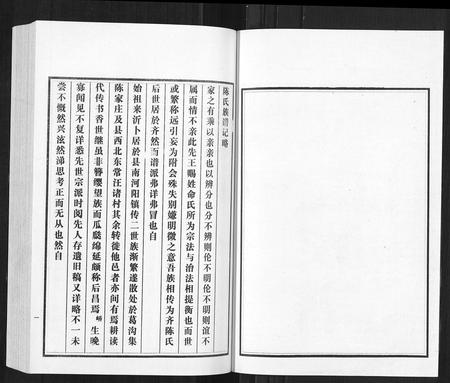 陈氏族谱记略
家之有乘以亲亲也以辨分也分不辨则伦不明伦不明则谊不
属而情不亲此先王赐姓命氏所为宗法与治法相提衡也而世
或繁称远引妄为附会殊失别嫌明微之意吾族相传为齐陈氏
后世居於齐然而谱派弗详弗冒也自
始祖来沂卜居於县南河阳镇传二世族渐繁遂散处於葛沟集
陈家庄及县西北东常汪诸村其余转徙他邑者亦间有焉耕读
代传书香世继虽非簪缨望族而瓜瓞绵延颇称后昌焉 生晚
寡闻见不复详悉先世宗派时阅先人存遗旧稿又详略不一未
尝不慨然兴泫然涕思考正而无从也然自
一